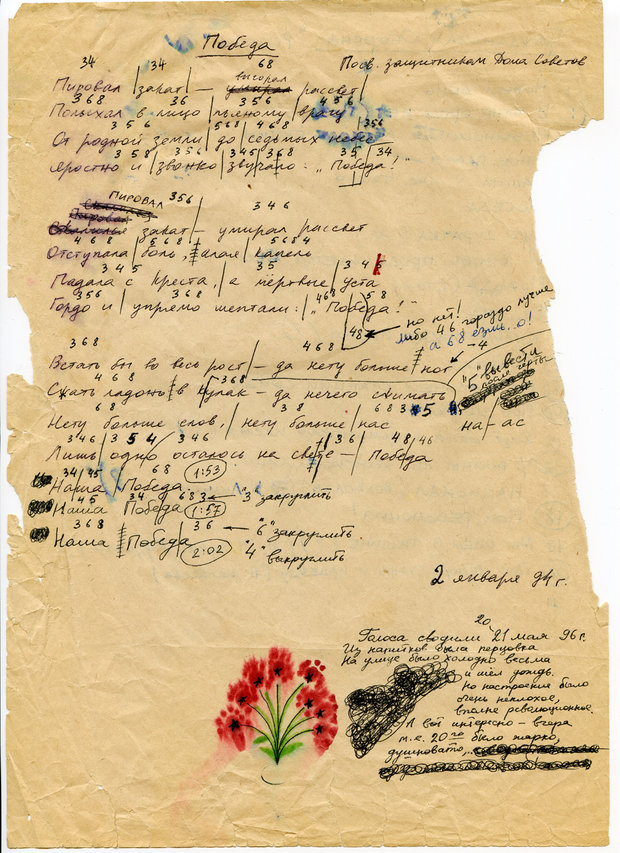 Победа
Посв. защитникам Дома Советов
34 34 68
выгорал
Пировал закат — умирал рассвет
368 36 356 456
Полыхал в лицо пьяному врагу
356 568 468 356
От родной земли до седьмых небес
358 356 345 368 35 34
Яростно и звонко звучало: „Победа!"
ПИРОВАЛ 356 346
закат — умирал рассвет
468 568 5684
Отступала боль, алая капель
345 35 345
Падала с креста, а мёртвые уста
356 368 468 58
Гордо и упрямо шептали: „Победа!"
48 ← но нет!
либо 46 гораздо лучше
а 68 езмь..о!
368 468 — 4
Встать бы во весь рост — да нету больше ног
"5" вывести
после
468 368
Сжать ладонь в кулак — да нечего сжимать
68 38 683 5
Нету больше слов, нету больше нас
на-ас
346 354 346 36 48 46
Лишь одно осталось на свете — Победа
34 45 68
Наша Победа 1:53
45 34 683 ← "3" закруглить
Наша Победа 1:57
368 36 ← "6" закруглить.
Наша Победа 2:02
"4" выкруглить
2 января 94 г.
20,
Голоса сводили 21 мая 96 г.
Из напитков была перцовка
На улице было холодно весьма
и шёл дождь.
Но настроение было
очень неплохое,
вполне революционное.
А вот интересно — вчера
т.е. 20го было жарко,
душновато,..